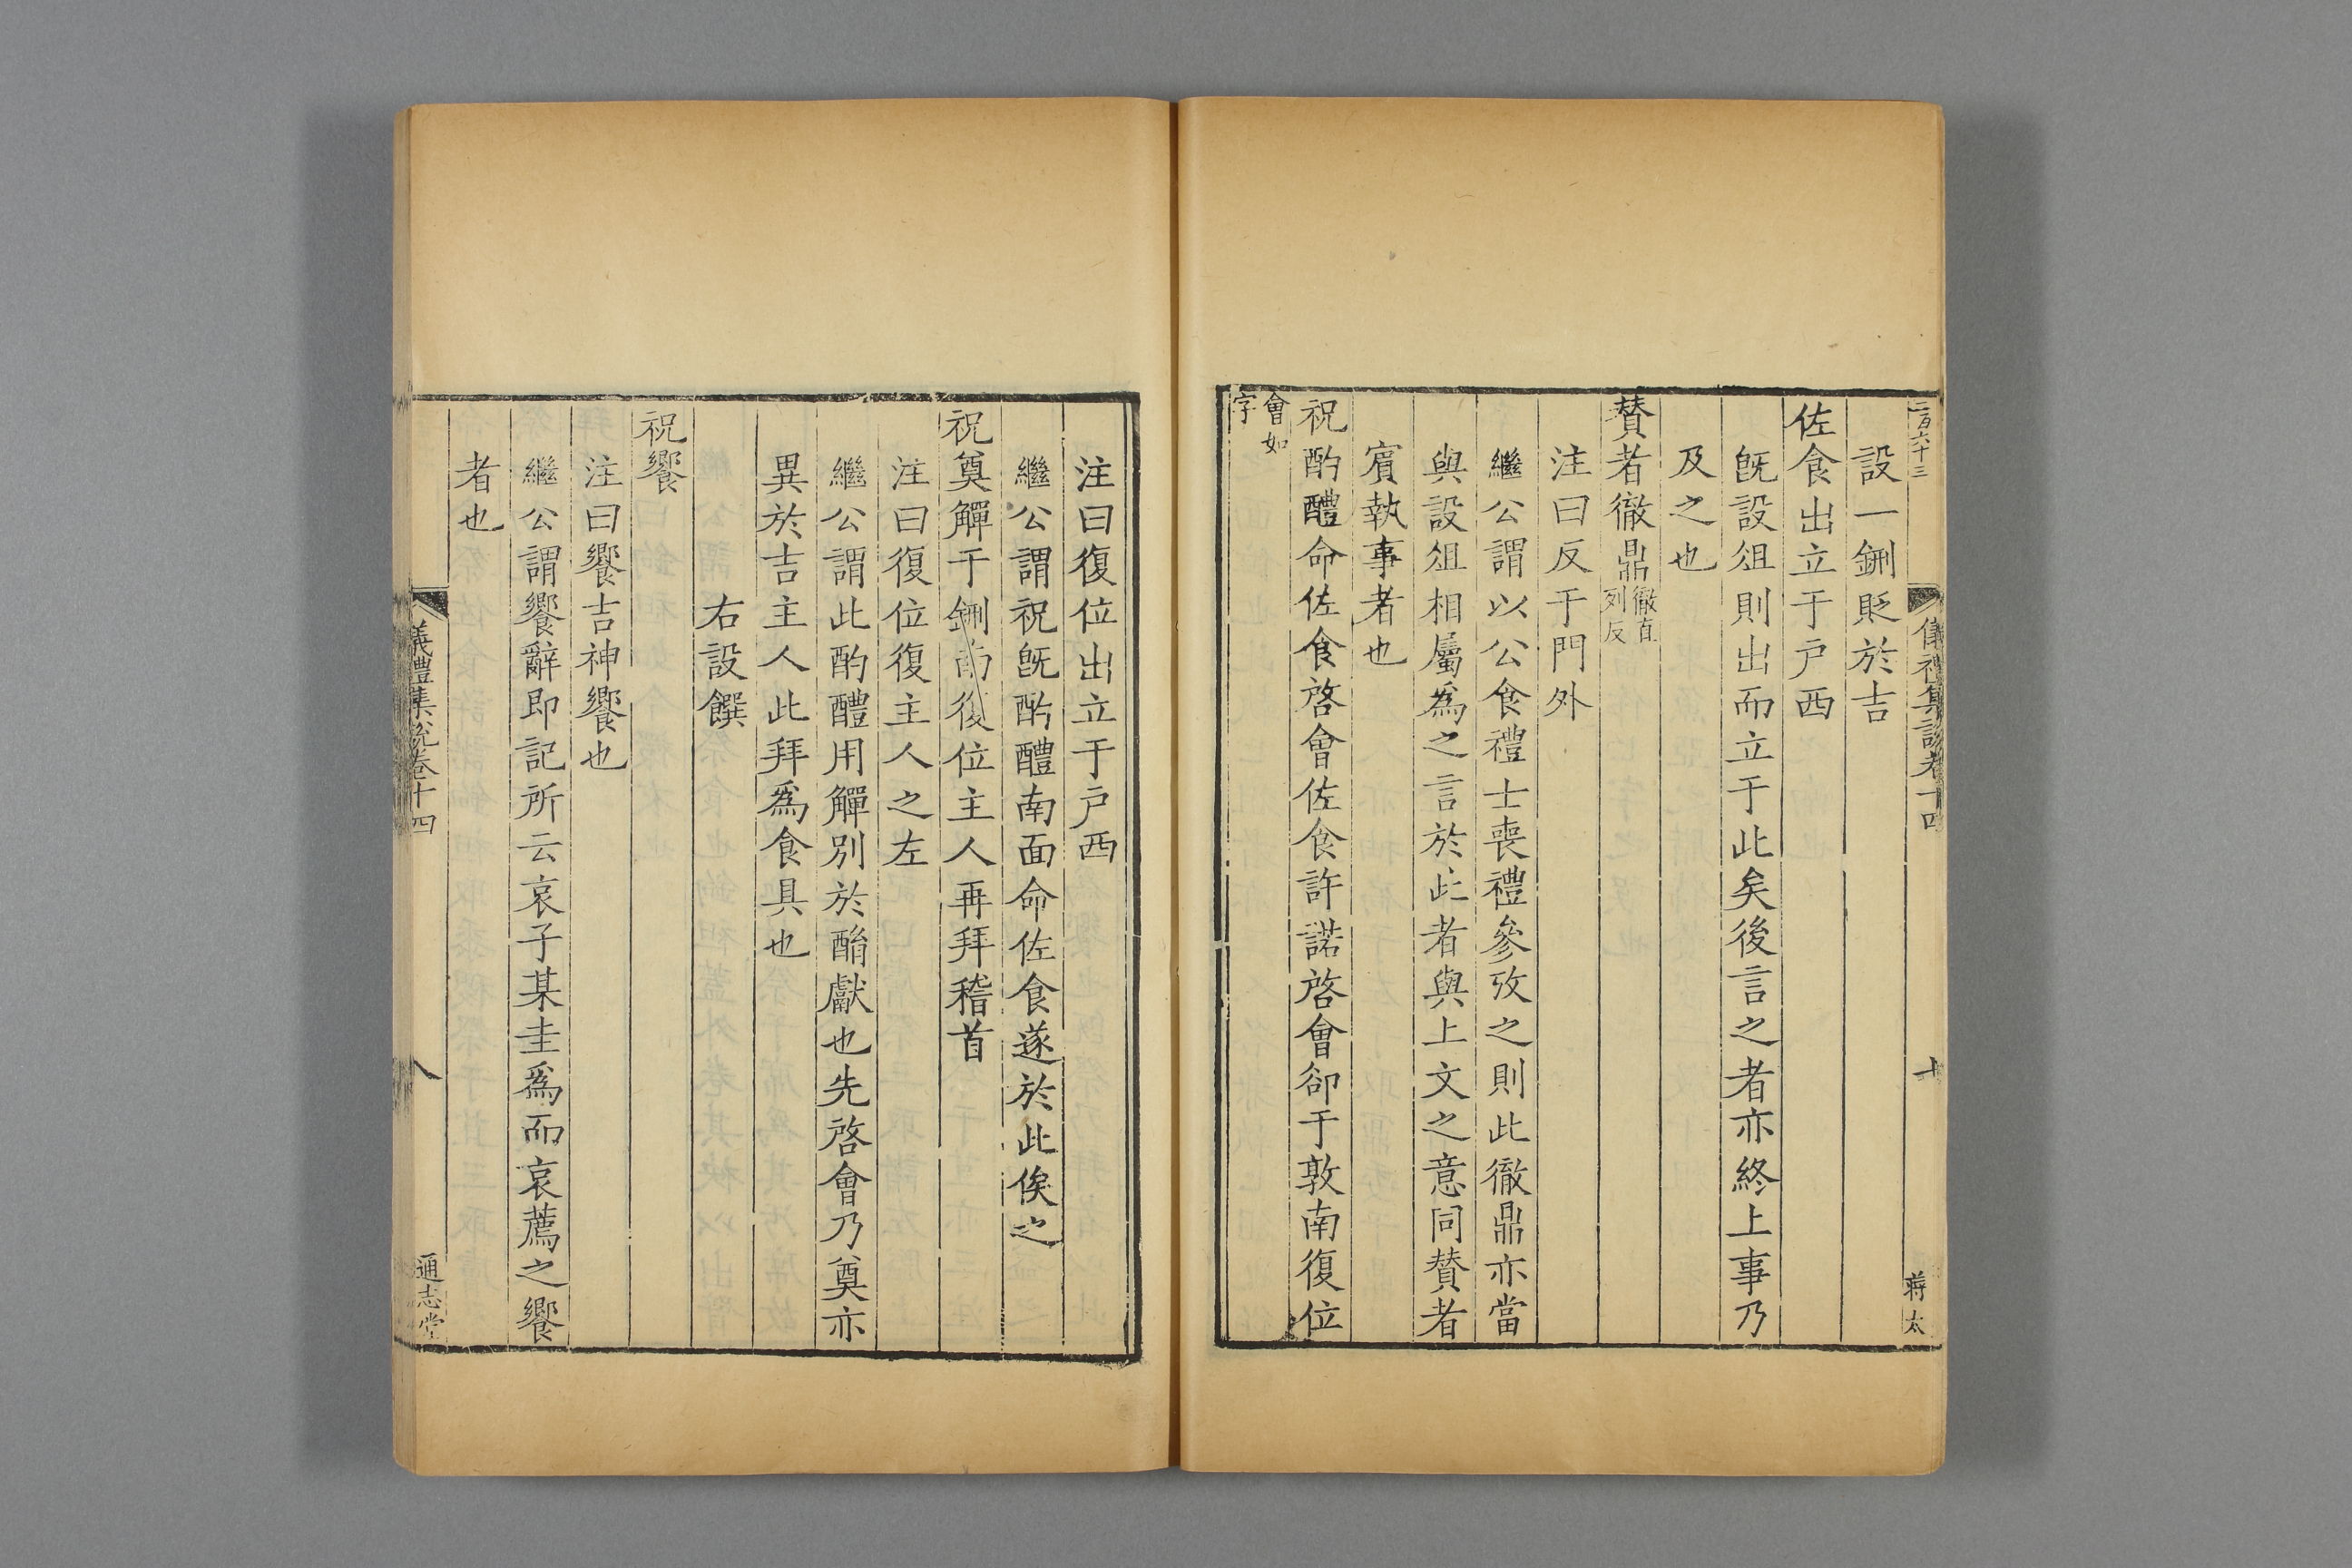 二百六十三
儀禮集說卷十四
十
蔣太
設一鉶貶於吉
佐食出立于戶西
旣設俎則出而立于此矣後言之者亦終上事乃
及之也
賛者徹鼎徹直列反
注曰反于門外
繼公謂以公食禮士喪禮參攷之則此徹鼎亦當
與設俎相屬爲之言於此者與上文之意同賛者
賔執事者也
祝酌醴命佐食啓會佐食許諾啓會卻于敦南復位
會如字
注曰復位出立于戶西
繼公謂祝旣酌醴南面命佐食遂於此俟之
祝奠觶于鉶南復位主人再拜稽首
注曰復位復主人之左
繼公謂此酌醴用觶別於酳獻也先啓會乃奠亦
異於吉主人此拜爲食具也
右設饌
祝饗
注曰饗吉神饗也
繼公謂饗辭即記所云哀子某圭爲而哀薦之饗
者也
儀禮集說卷十四
八
通志堂